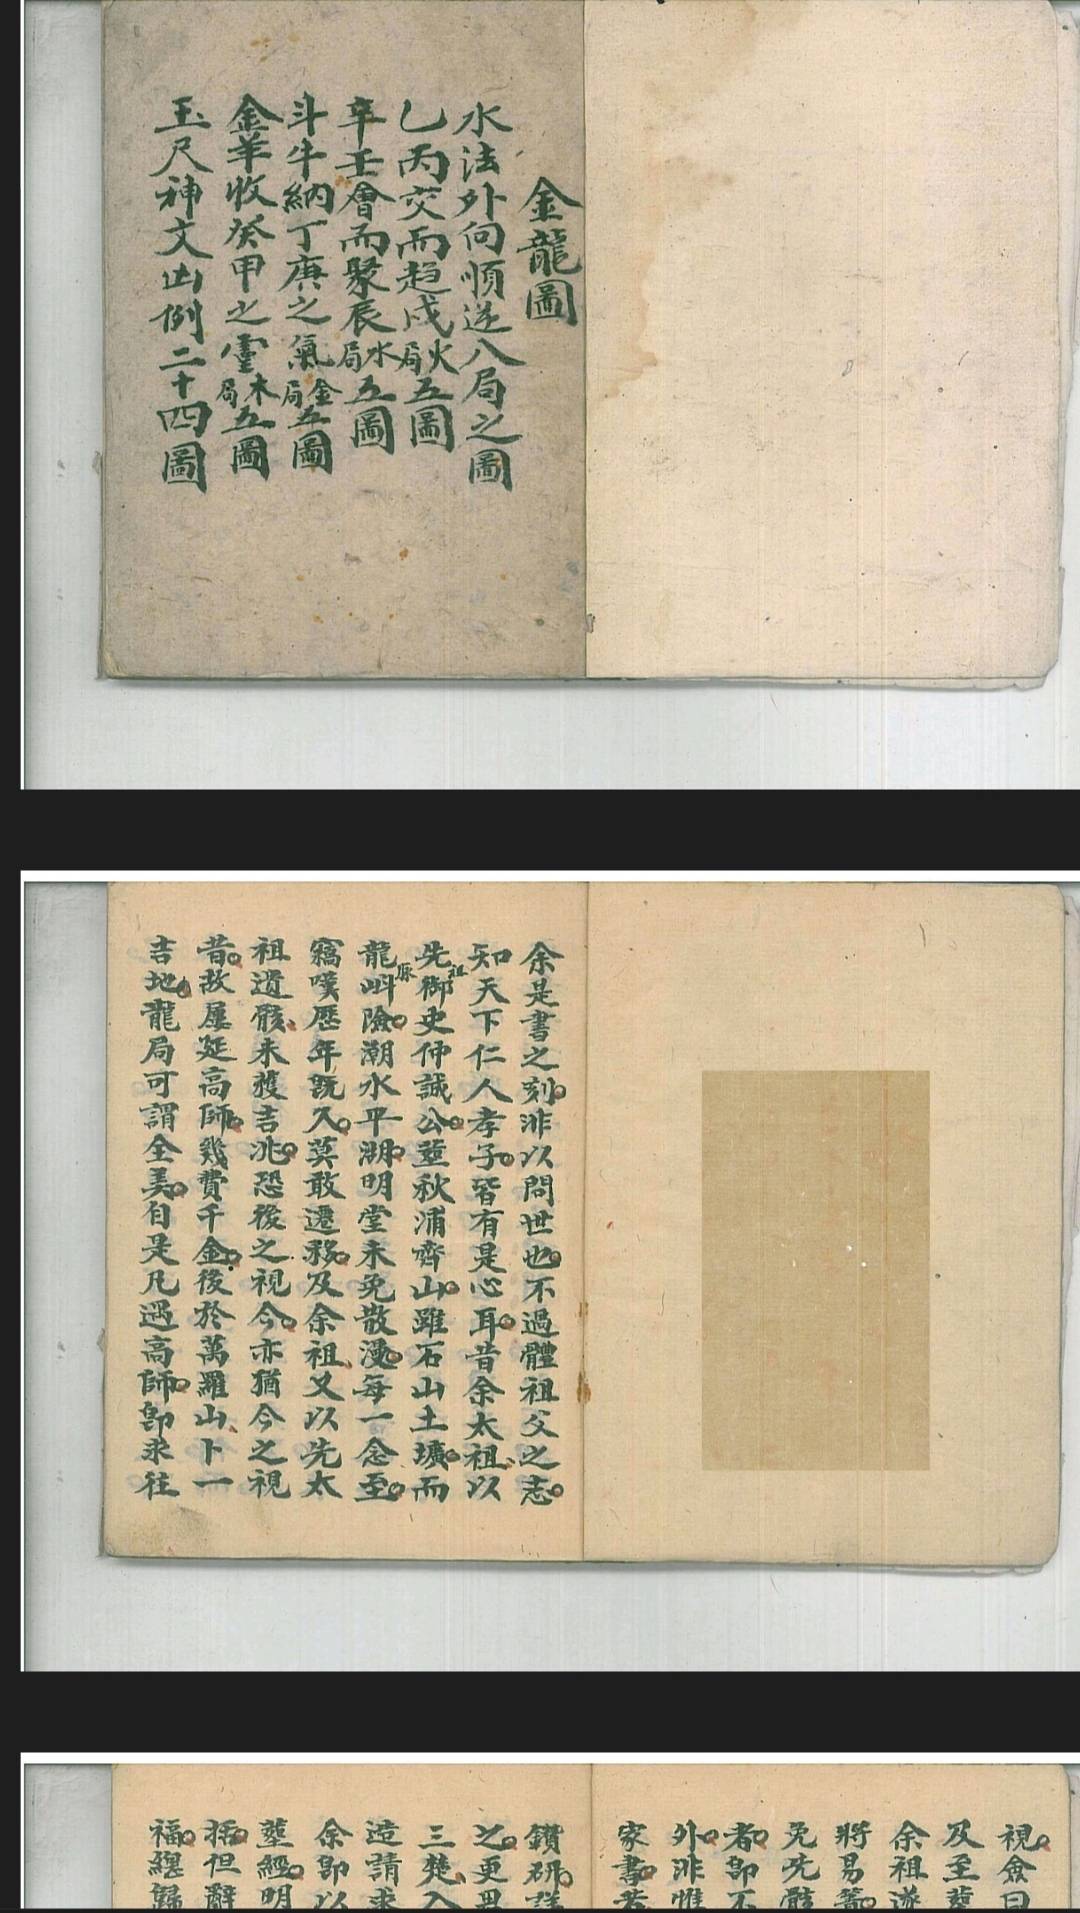 金龍圖
水法外向順逆八局之圖
乙丙交而趋戌火局五圖
辛壬會而聚辰水局五圖
斗牛納丁庚之氣金局五圖
金羊收癸甲之靈木局五圖
玉尺神文凶例二十四圖
余是書之刻非以問世也不過體祖父之志
知天下仁人孝子皆有是心耳昔余太祖以
先祖御史仲誠公塟秋浦齊山雖石山土壙而
龍脉險潮水平湖明堂未免散漫每一念至
竊嘆歷年既久莫敢遷移及余祖又以先太
祖遺骸未獲吉兆恐後之視今亦猶今之視
昔故屢延高師幾費千金後於萬羅山卜一
吉地龍局可謂全美自是凡遇高師即求往
視僉曰
及至塟
余祖遂
將易簀
免先骸
者即不
外非惟
家書
鑽研
之更
三楚入
造請求
余即以
塟經明
括但辭
福